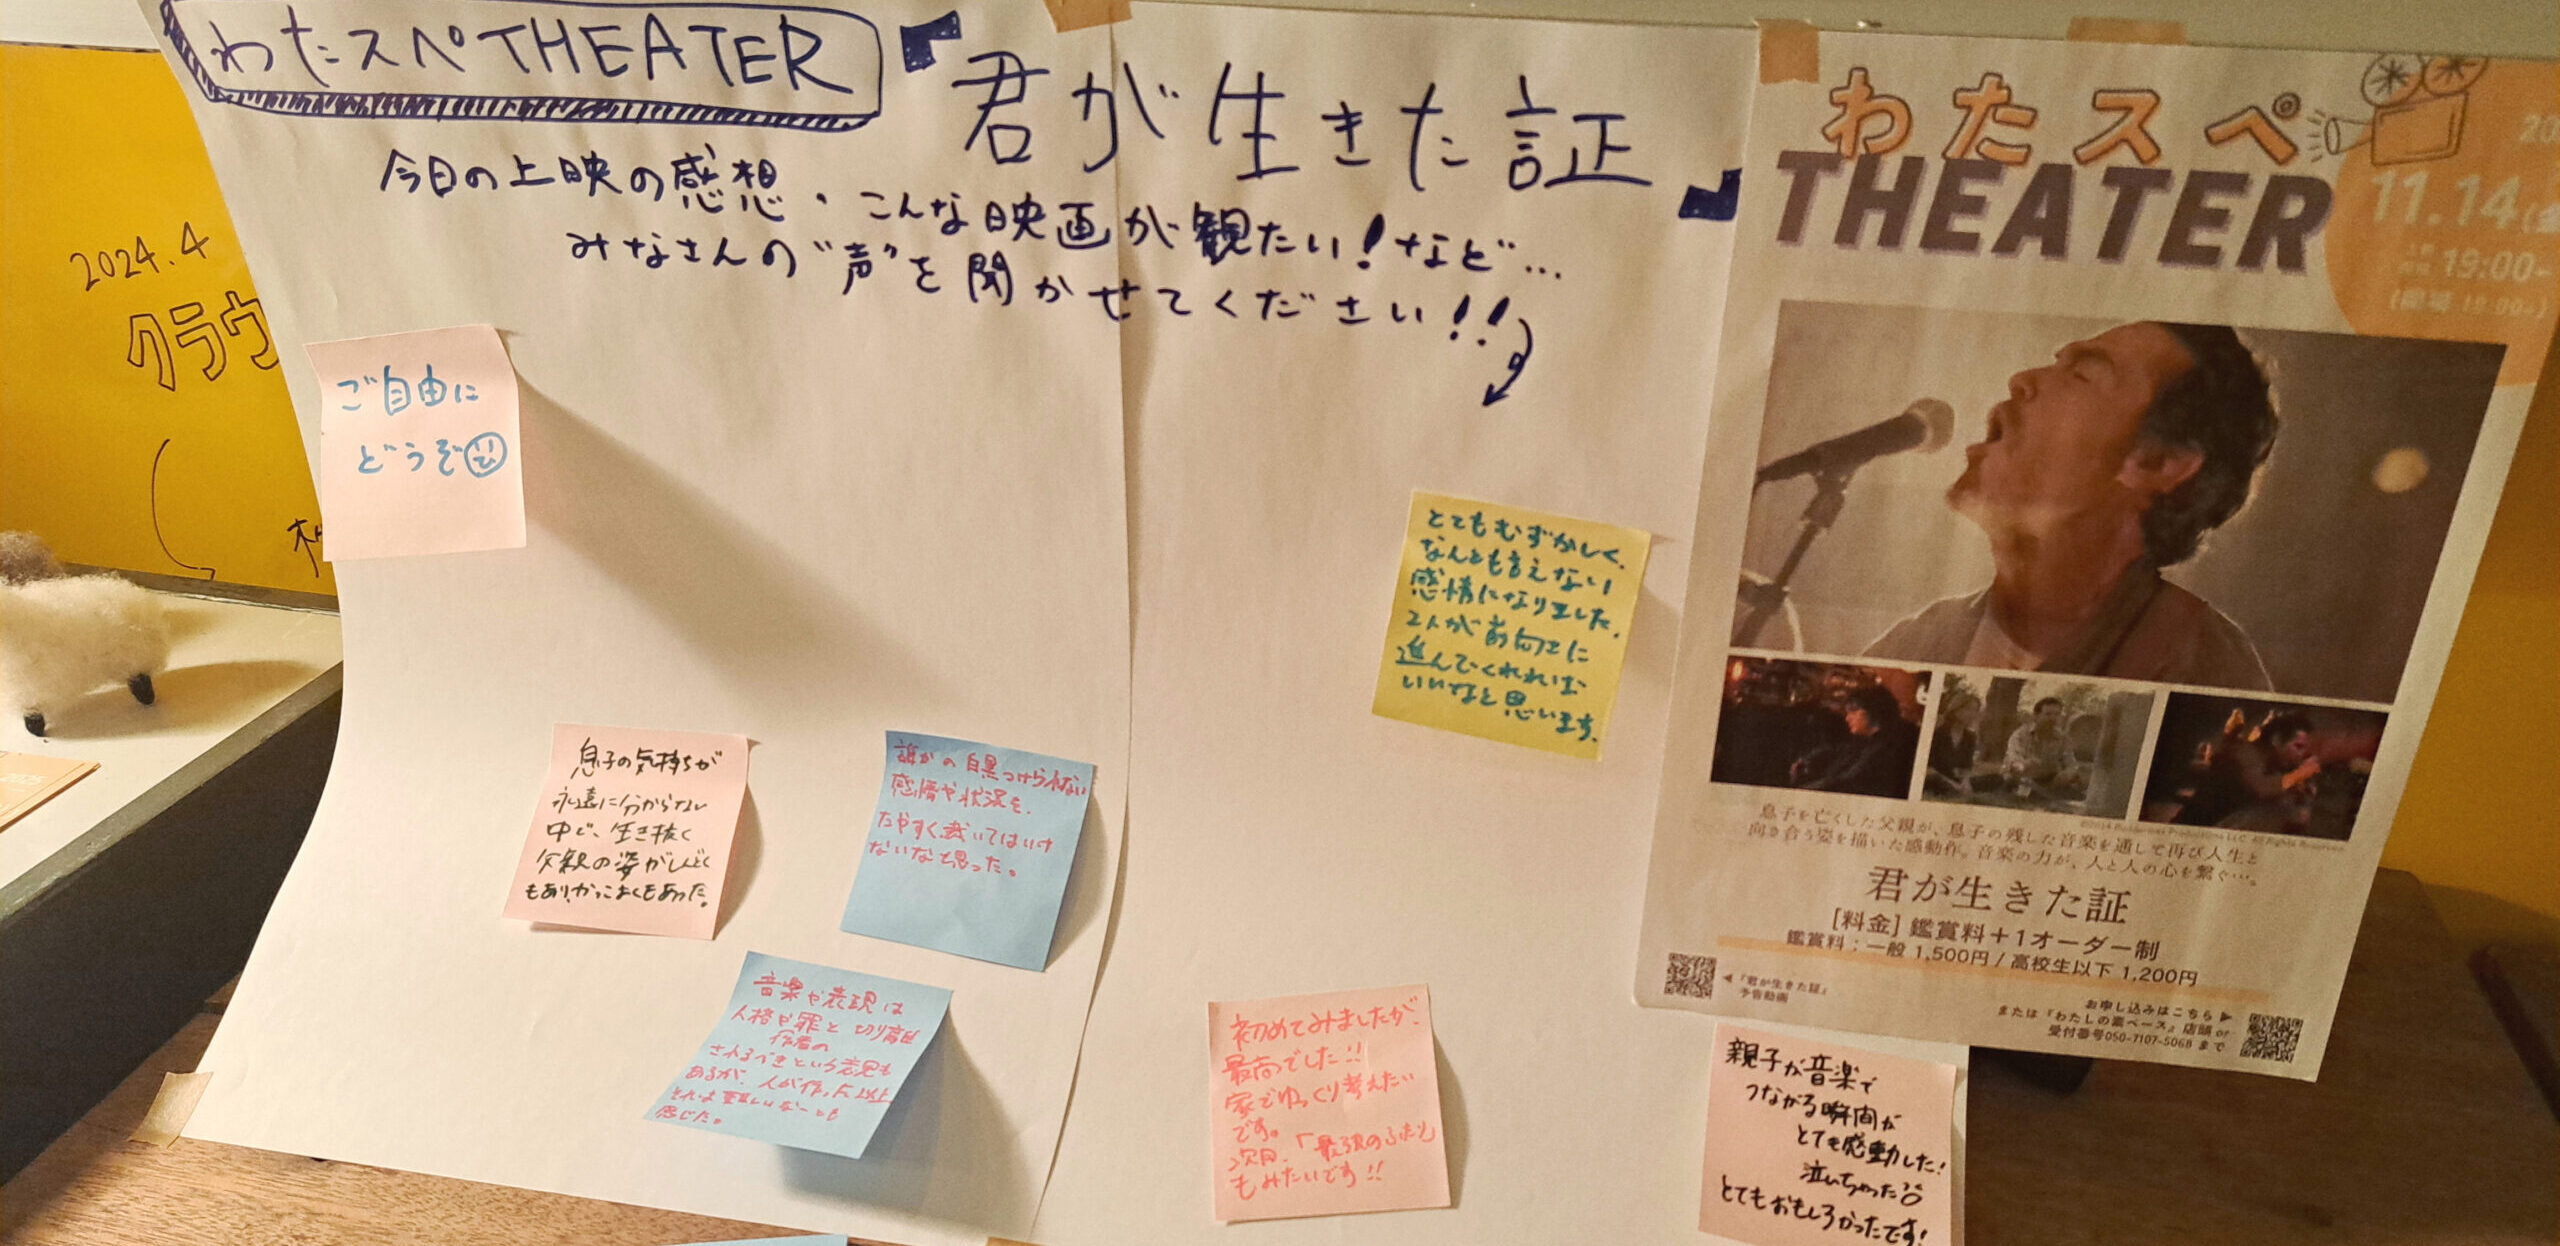 わたスペTHEATER
『君が生きた証』
今日の上映の感想・こんな映画が観たい!など…
みなさんの"声"を聞かせてください!!
2024.4
クラウ
ご自由に
どうぞ
とてもむずかしく、
なんとも言えない
感情になりました。
2人が前向きに
進んでくれれば
いいなと思います。
息子の気持ちが
永遠に分からない
中で、生き抜く
父親の姿がしんどく
もあり、かっこよくもあった。
誰かの白黒つけられない
感情や状況を、
たやすく裁いてはいけ
ないなと思った。
音楽や表現は
人格や罪と切り離
作者の
されるべきという意見も
あるが、人が作った以上
それは難しいなーとも
感じた。
初めてみましたが、
最高でした!!
家でゆっくり考えたい
です。
次回、「最強のふたり」
もみたいです!!
親子が音楽で
つながる瞬間が
とても感動した!
泣いちゃった
とてもおもしろかったです!
わたスペ
THEATER
20
11.14
19:00-
息子を亡くした父親が、息子の残した音楽を通して再び人生と
向き合う姿を描いた感動作。音楽の力が、人と人の心を繋ぐ…。
君が生きた証
[料金] 鑑賞料+1オーダー制
鑑賞料:一般 1,500円 / 高校生以下 1,200円
◀『君が生きた証』
予告動画
お申し込みはこちら▶
または『わたしの素ベース』店頭 or
受付番号050-7107-5068 まで
2025